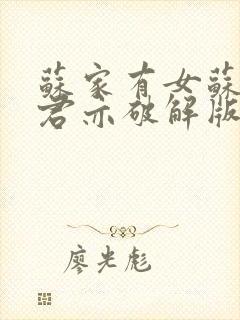 蘇家有女蘇
君亦破解版
廖光彪